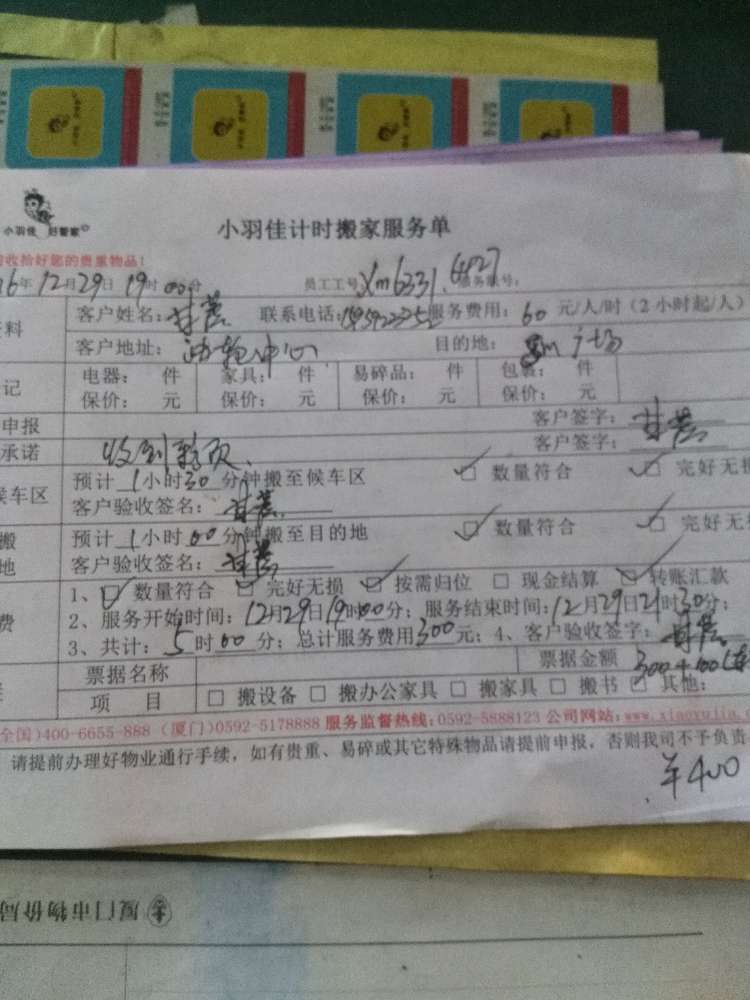 小羽佳 好管家
小羽佳计时搬家服务单
收拾好您的贵重物品!
16年12月29日19时00分 员工工号Xm6331.4827 服务账号:
料 客户姓名: 联系电话: 服务费用: 60 元/人/时(2小时起/人)
客户地址: 目的地: 广场
记 电器: 件 家具: 件 易碎品: 件 包裹: 件
保价: 元 保价: 元 保价: 元 保价: 元
申报 客户签字:
承诺 收到款项 客户签字:
候车区 预计1小时30分钟搬至候车区 ☑ 数量符合 ☑ 完好无损
客户验收签名:
搬 预计1小时00分钟搬至目的地 ☑ 数量符合 ☑ 完好无
地 客户验收签名:
1、☑ 数量符合 ☑ 完好无损 ☑ 按需归位 □ 现金结算 ☑ 转账汇款
费 2、服务开始时间:12月29日19时00分; 服务结束时间:12月29日21时30分;
3、共计:5时00分; 总计服务费用300元; 4、客户验收签字:
票据名称 票据金额 300+100
项 目 □ 搬设备 □ 搬办公家具 □ 搬家具 □ 搬书 □ 其他:
全国)400-6655-888 (厦门)0592-5178888 服务监督热线:0592-5888123 公司网站:www.xiaoyujia.
请提前办理好物业通行手续,如有贵重、易碎或其它特殊物品请提前申报,否则我司不予负责
¥400
厦门市物价局